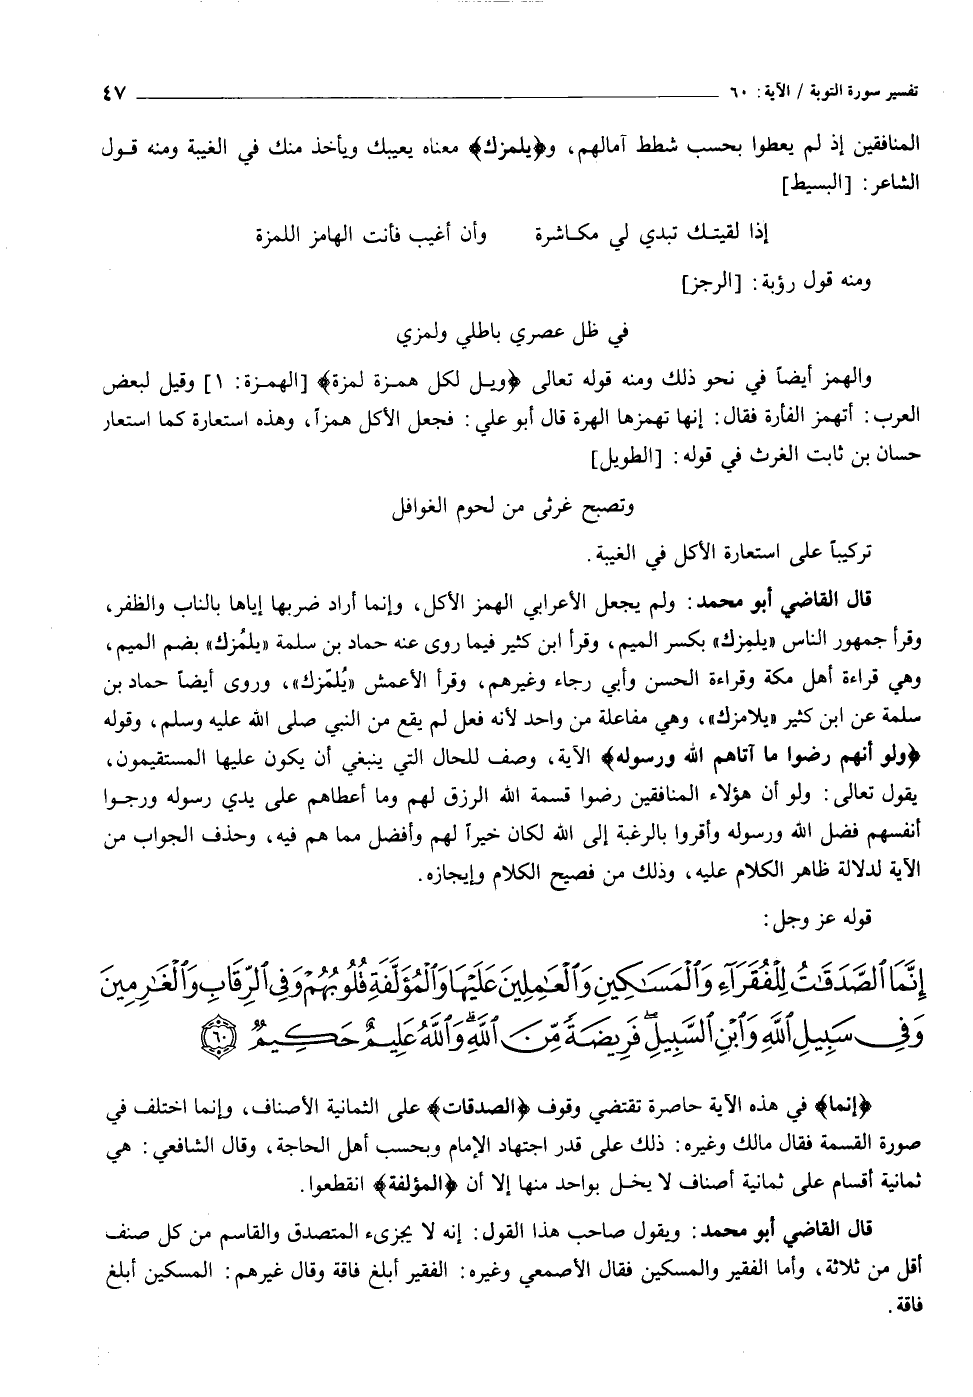 تفسير سورة التوبة / الآية: ٦٠ ٤٧
المنافقين إذ لم يعطوا بحسب شطط آمالهم، و﴿يلمزك﴾ معناه يعيبك ويأخذ منك في الغيبة ومنه قول
الشاعر: [البسيط]
إذا لقيتك تبدي لي مكاشرة وأن أغيب فأنت الهامز اللمزة
ومنه قول رؤبة: [الرجز]
في ظل عصري باطلي ولمزي
والهمز أيضاً في نحو ذلك ومنه قوله تعالى ﴿ويل لكل همزة لمزة﴾ [الهمزة: ١] وقيل لبعض
العرب: أتهمز الفأرة فقال: إنها تهمزها الهرة قال أبو علي: فجعل الأكل همزاً، وهذه استعارة كما استعار
حسان بن ثابت الغرث في قوله: [الطويل]
وتصبح غرثى من لحوم الغوافل
تركيباً على استعارة الأكل في الغيبة.
قال القاضي أبو محمد: ولم يجعل الأعرابي الهمز الأكل، وإنما أراد ضربها إياها بالناب والظفر،
وقرأ جمهور الناس «يلمِزك» بكسر الميم، وقرأ ابن كثير فيما روى عنه حماد بن سلمة «يلمُزك» بضم الميم،
وهي قراءة أهل مكة وقراءة الحسن وأبي رجاء وغيرهم، وقرأ الأعمش «يُلمّزك»، وروى أيضاً حماد بن
سلمة عن ابن كثير «يلامزك»، وهي مفاعلة من واحد لأنه فعل لم يقع من النبي صلى الله عليه وسلم، وقوله
﴿ولو أنهم رضوا ما آتاهم الله ورسوله﴾ الآية، وصف للحال التي ينبغي أن يكون عليها المستقيمون،
يقول تعالى: ولو أن هؤلاء المنافقين رضوا قسمة الله الرزق لهم وما أعطاهم على يدي رسوله ورجوا
أنفسهم فضل الله ورسوله وأقروا بالرغبة إلى الله لكان خيراً لهم وأفضل مما هم فيه، وحذف الجواب من
الآية لدلالة ظاهر الكلام عليه، وذلك من فصيح الكلام وإيجازه.
قوله عز وجل:
إِنَّمَا الصَّدَقَاتُ لِلْفُقَرَاءِ وَالْمَسَاكِينِ وَالْعَامِلِينَ عَلَيْهَا وَالْمُؤَلَّفَةِ قُلُوبُهُمْ وَفِي الرِّقَابِ وَالْغَارِمِينَ
وَفِي سَبِيلِ اللَّهِ وَابْنِ السَّبِيلِ ۖ فَرِيضَةً مِّنَ اللَّهِ ۗ وَاللَّهُ عَلِيمٌ حَكِيمٌ ٦٠
﴿إنما﴾ في هذه الآية حاصرة تقتضي وقوف ﴿الصدقات﴾ على الثمانية الأصناف، وإنما اختلف في
صورة القسمة فقال مالك وغيره: ذلك على قدر اجتهاد الإمام وبحسب أهل الحاجة، وقال الشافعي: هي
ثمانية أقسام على ثمانية أصناف لا يخل بواحد منها إلا أن ﴿المؤلفة﴾ انقطعوا.
قال القاضي أبو محمد: ويقول صاحب هذا القول: إنه لا يجزىء المتصدق والقاسم من كل صنف
أقل من ثلاثة، وأما الفقير والمسكين فقال الأصمعي وغيره: الفقير أبلغ فاقة وقال غيرهم: المسكين أبلغ
فاقة.